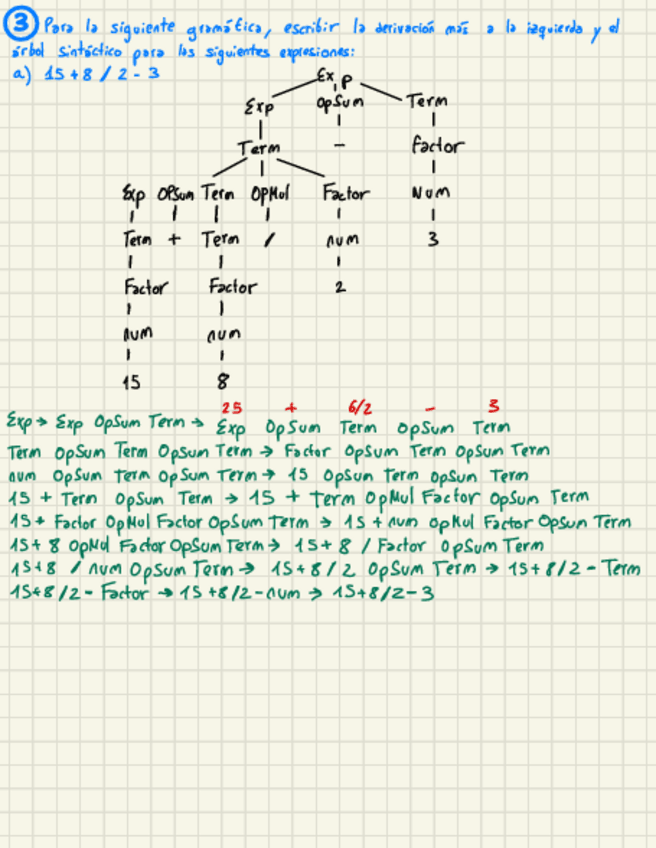 3 Para la siguiente gramática, escribir la derivación más a la izquierda y el
árbol sintáctico para las siguientes expresiones:
a) 15 + 8 / 2 - 3
Exp
Exp OpSum Term
Term - Factor
Exp OPSum Term OpMul Factor Num
Term + Term / num 3
Factor Factor 2
num num
15 8
25 + 6/2 - 3
Exp → Exp OpSum Term → Exp OpSum Term OpSum Term
Term OpSum Term OpSum Term → Factor OpSum Term OpSum Term
num OpSum Term OpSum Term → 15 OpSum Term OpSum Term
15 + Term OpSum Term → 15 + Term OpMul Factor OpSum Term
15+ Factor OpMul Factor OpSum Term → 15 + num OpMul Factor OpSum Term
15+ 8 OpMul Factor OpSum Term → 15+ 8 / Factor OpSum Term
15+8 / num OpSum Term → 15+8/2 OpSum Term → 15+8/2 - Term
15+8/2 - Factor → 15+8/2-num → 15+8/2-3